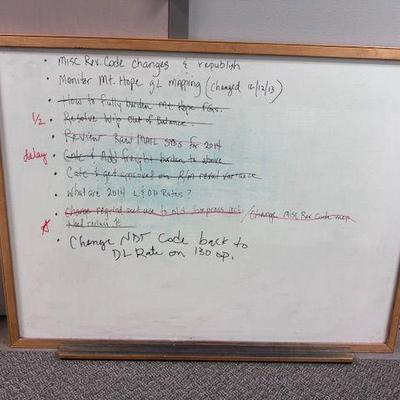 • Misc Rev. Code changes & republish
• Monitor Mt. Hope GL Mapping (changed 12/12/13)
• How to fully burden Mt Hope FGs.
1/2 • Resolve Wip out of balance.
• Review Raw MATL STDs for 2014
delay • Calc & Add freight burden to above
• Calc & get approval on R/M reval variance
• What are 2014 L & OD Rates?
• Change required use to old / Change Misc Rev Code map
• Change NDT Code back to
DL Rate on 130 op.